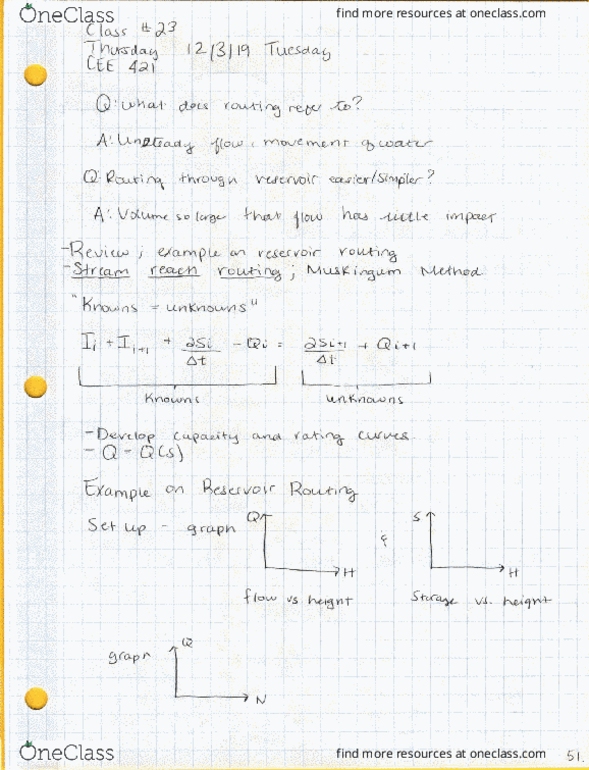 OneClass find more resources at oneclass.com
Class #23
Thursday 12/3/19 Tuesday
CEE 421
Q: What does routing refer to?
A: Unsteady flow, movement of water
Q: Routing through reservoir easier/simpler?
A: Volume so large that flow has little impact
- Review; example on reservoir routing
- Stream reach routing; Muskingum Method
"Knowns = unknowns"
Ii + Ii+1 + 2Si/Δt - Qi = 2Si+1/Δt + Qi+1
Knowns unknowns
- Develop capacity and rating curves.
- Q - Q(s)
Example on Reservoir Routing
Set up - graph Q H & S H
flow vs height Storage vs. height
graph Q N
OneClass find more resources at oneclass.com 51.